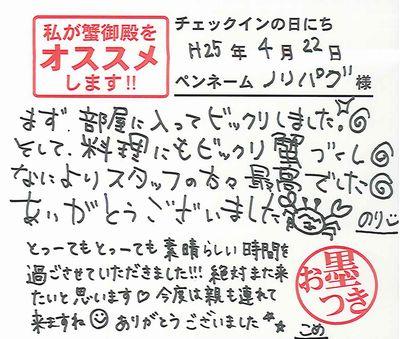 私が蟹御殿を
オススメ
します!!
チェックインの日にち
H25年 4月 22日
ペンネーム ノリパグ 様
まず、部屋に入ってビックリしました!
そして、料理にもビックリ 蟹づくし
なによりスタッフの方々最高でした
ありがとうございました
のり
とっーてもとっーても素晴らしい時間を
過ごさせていただきました!!! 絶対また来
たいと思います♡ 今度は親も連れて
来ますね☺ ありがとうございました★★
こめ
お墨
つき